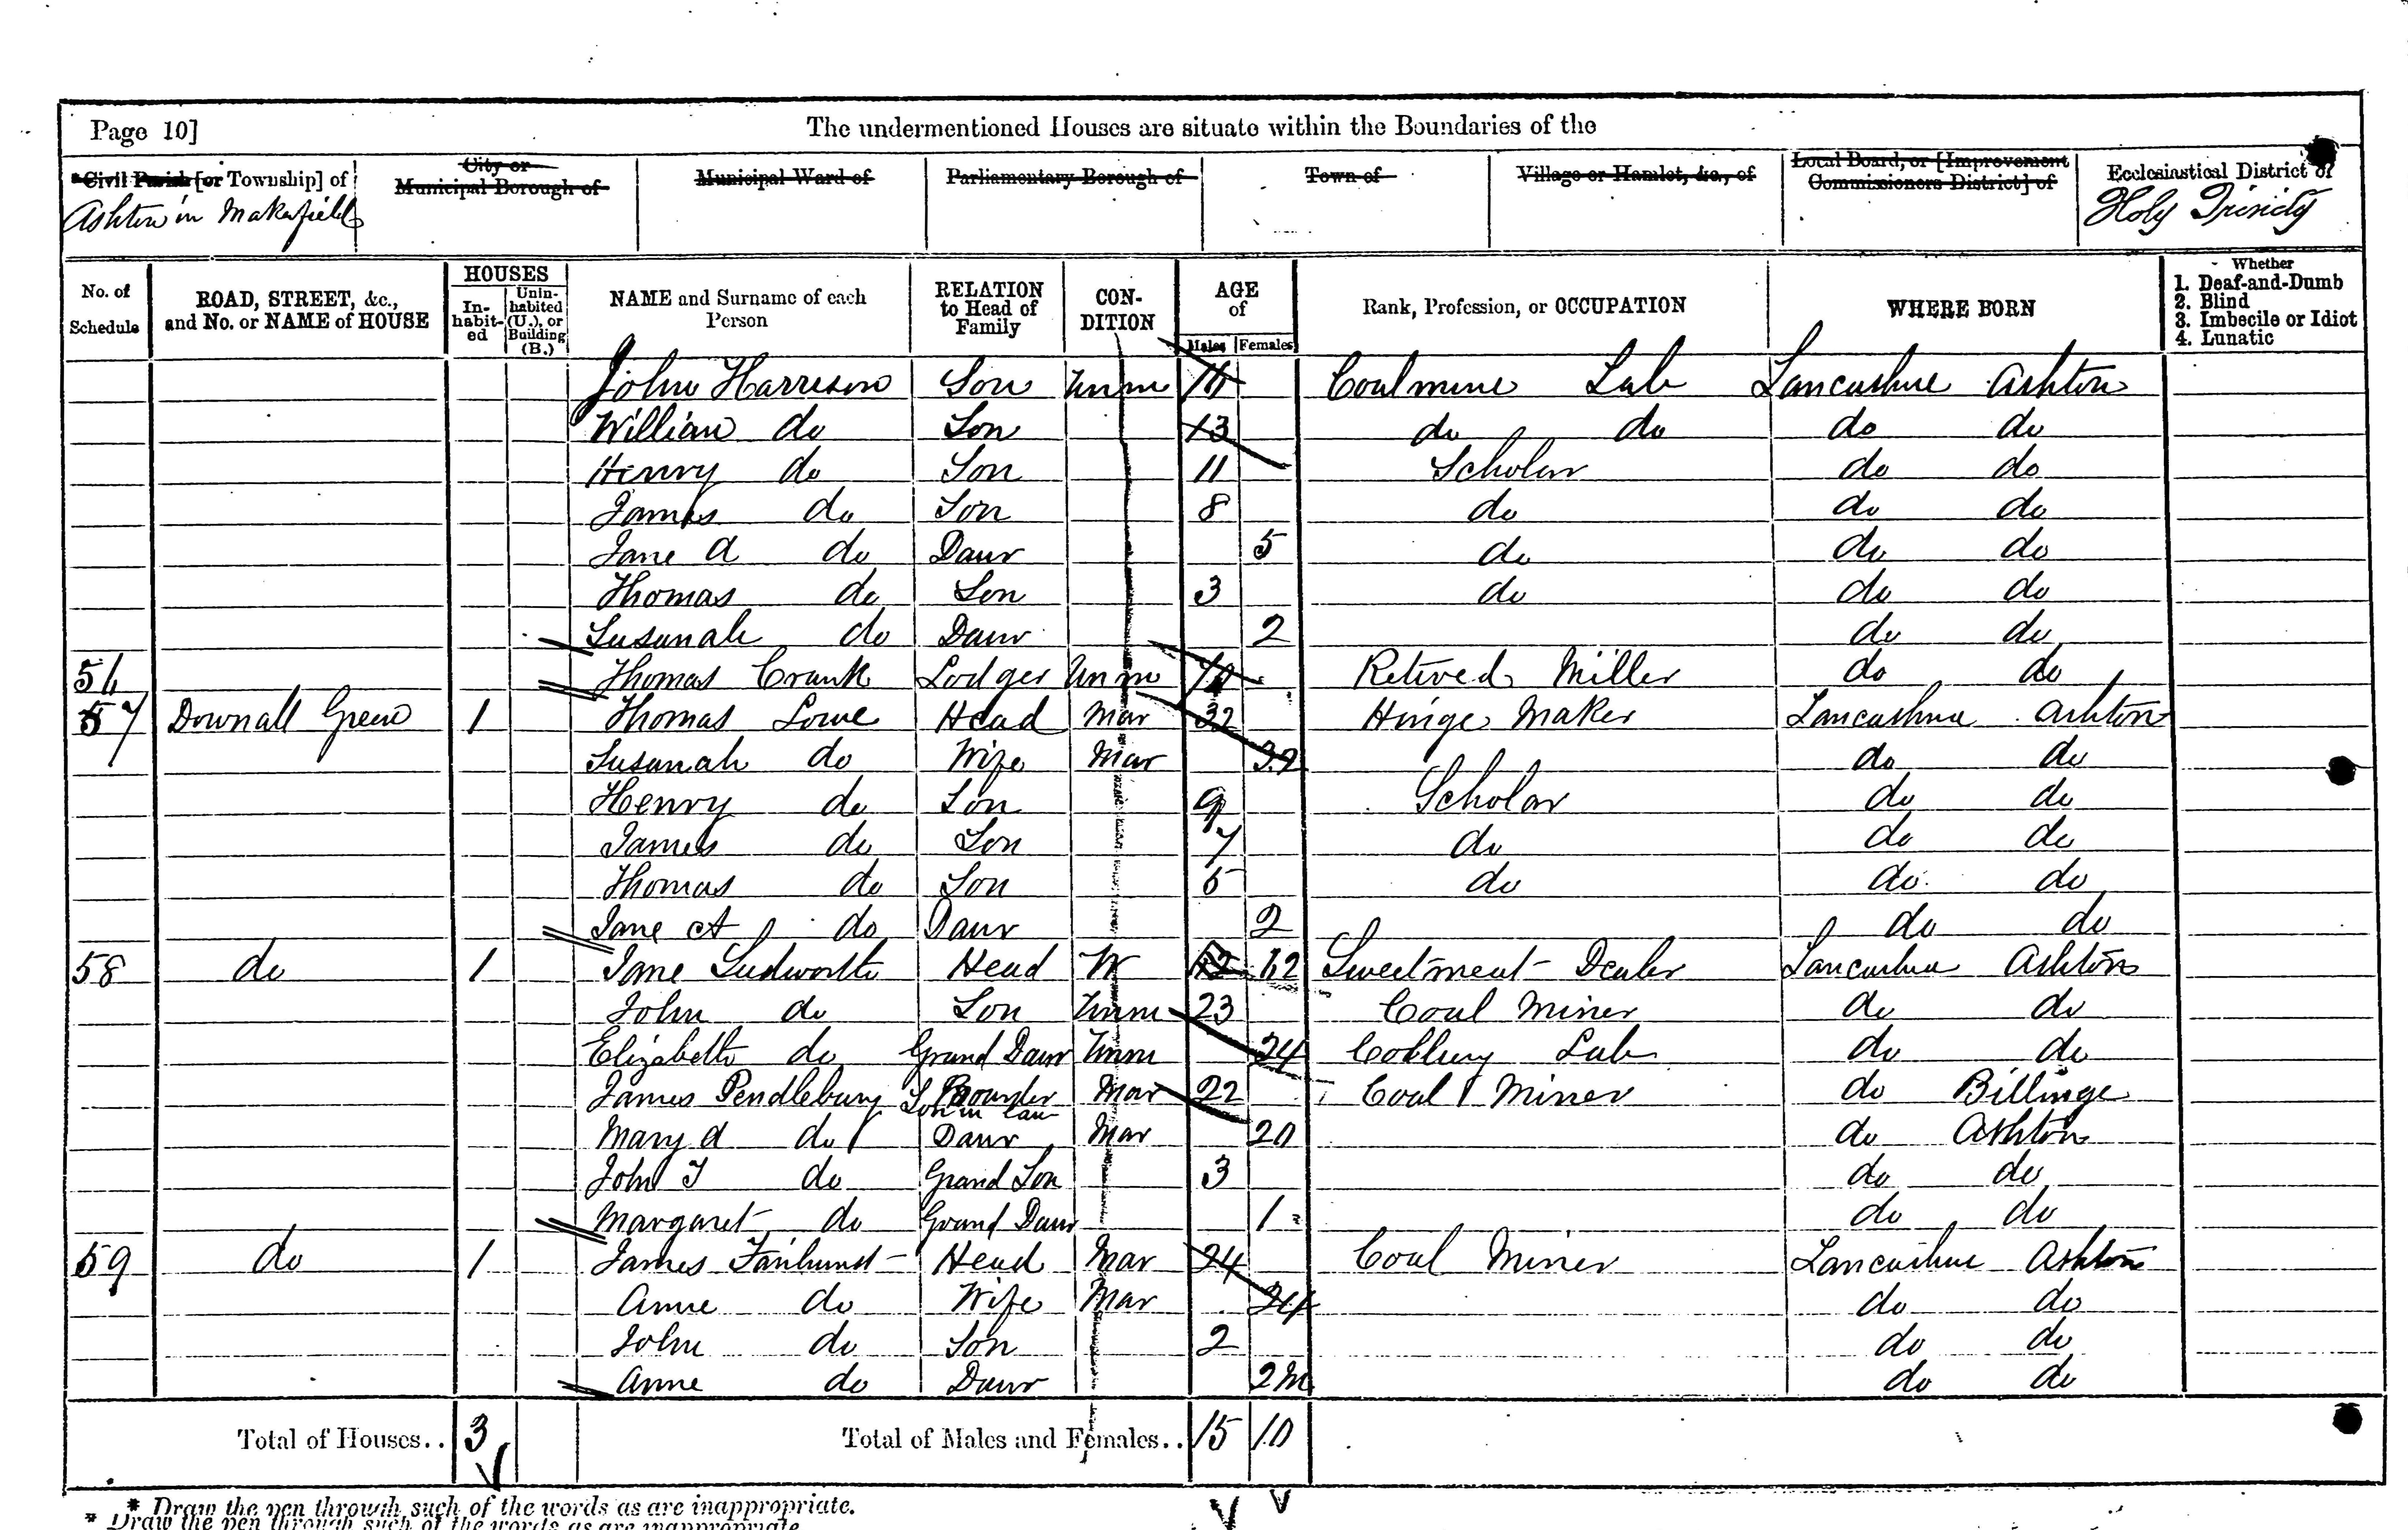 Page 10]
The undermentioned Houses are situate within the Boundaries of the
*Civil Parish [or Township] of
City or Municipal Borough of
Municipal Ward of
Parliamentary Borough of
Town of
Village or Hamlet, &c., of
Local Board, or [Improvement Commissioners District] of
Ecclesiastical District of
Ashton in Makerfield
Holy Trinity
No. of Schedule
ROAD, STREET, &c., and No. or NAME of HOUSE
HOUSES
In-habit-ed
Unin-habited (U.), or Building (B.)
NAME and Surname of each Person
RELATION to Head of Family
CON-DITION
AGE of
Males Females
Rank, Profession, or OCCUPATION
WHERE BORN
Whether
1. Deaf-and-Dumb
2. Blind
3. Imbecile or Idiot
4. Lunatic
John Harrison Son Unm Coalmine Lab Lancashire Ashton
William do Son 13 do do do do
Henry do Son 11 Scholar do do
James do Son 8 do do do
Jane A do Daur 5 do do do
Thomas do Son 3 do do do
Susanah do Daur 2 do do
Thomas Crank Lodger Unm Retired Miller do do
57 Downall Green 1 Thomas Lowe Head Mar 32 Hinge Maker Lancashire Ashton
Susanah do Wife Mar do do
Henry do Son 9 Scholar do do
James do Son 7 do do do
Thomas do Son 5 do do do
Jane A do Daur 2 do do
58 do 1 Jane Ludworth Head W Sweetmeat Dealer Lancashire Ashton
John do Son Unm 23 Coal Miner do do
Elizabeth do Grand Daur Unm 24 Colliery Lab do do
James Pendlebury Boarder Son in law Mar 22 Coal Miner do Billinge
Mary A do Daur Mar 20 do Ashton
John T do Grand Son 3 do do
Margaret do Grand Daur 1 do do
59 do 1 James Fairhurst Head Mar 24 Coal Miner Lancashire Ashton
Anne do Wife Mar 24 do do
John do Son 2 do do
Anne do Daur 2m do do
Total of Houses.. 3
Total of Males and Females.. 15 10
* Draw the pen through such of the words as are inappropriate.
* Draw the pen through such of the words as are inappropriate